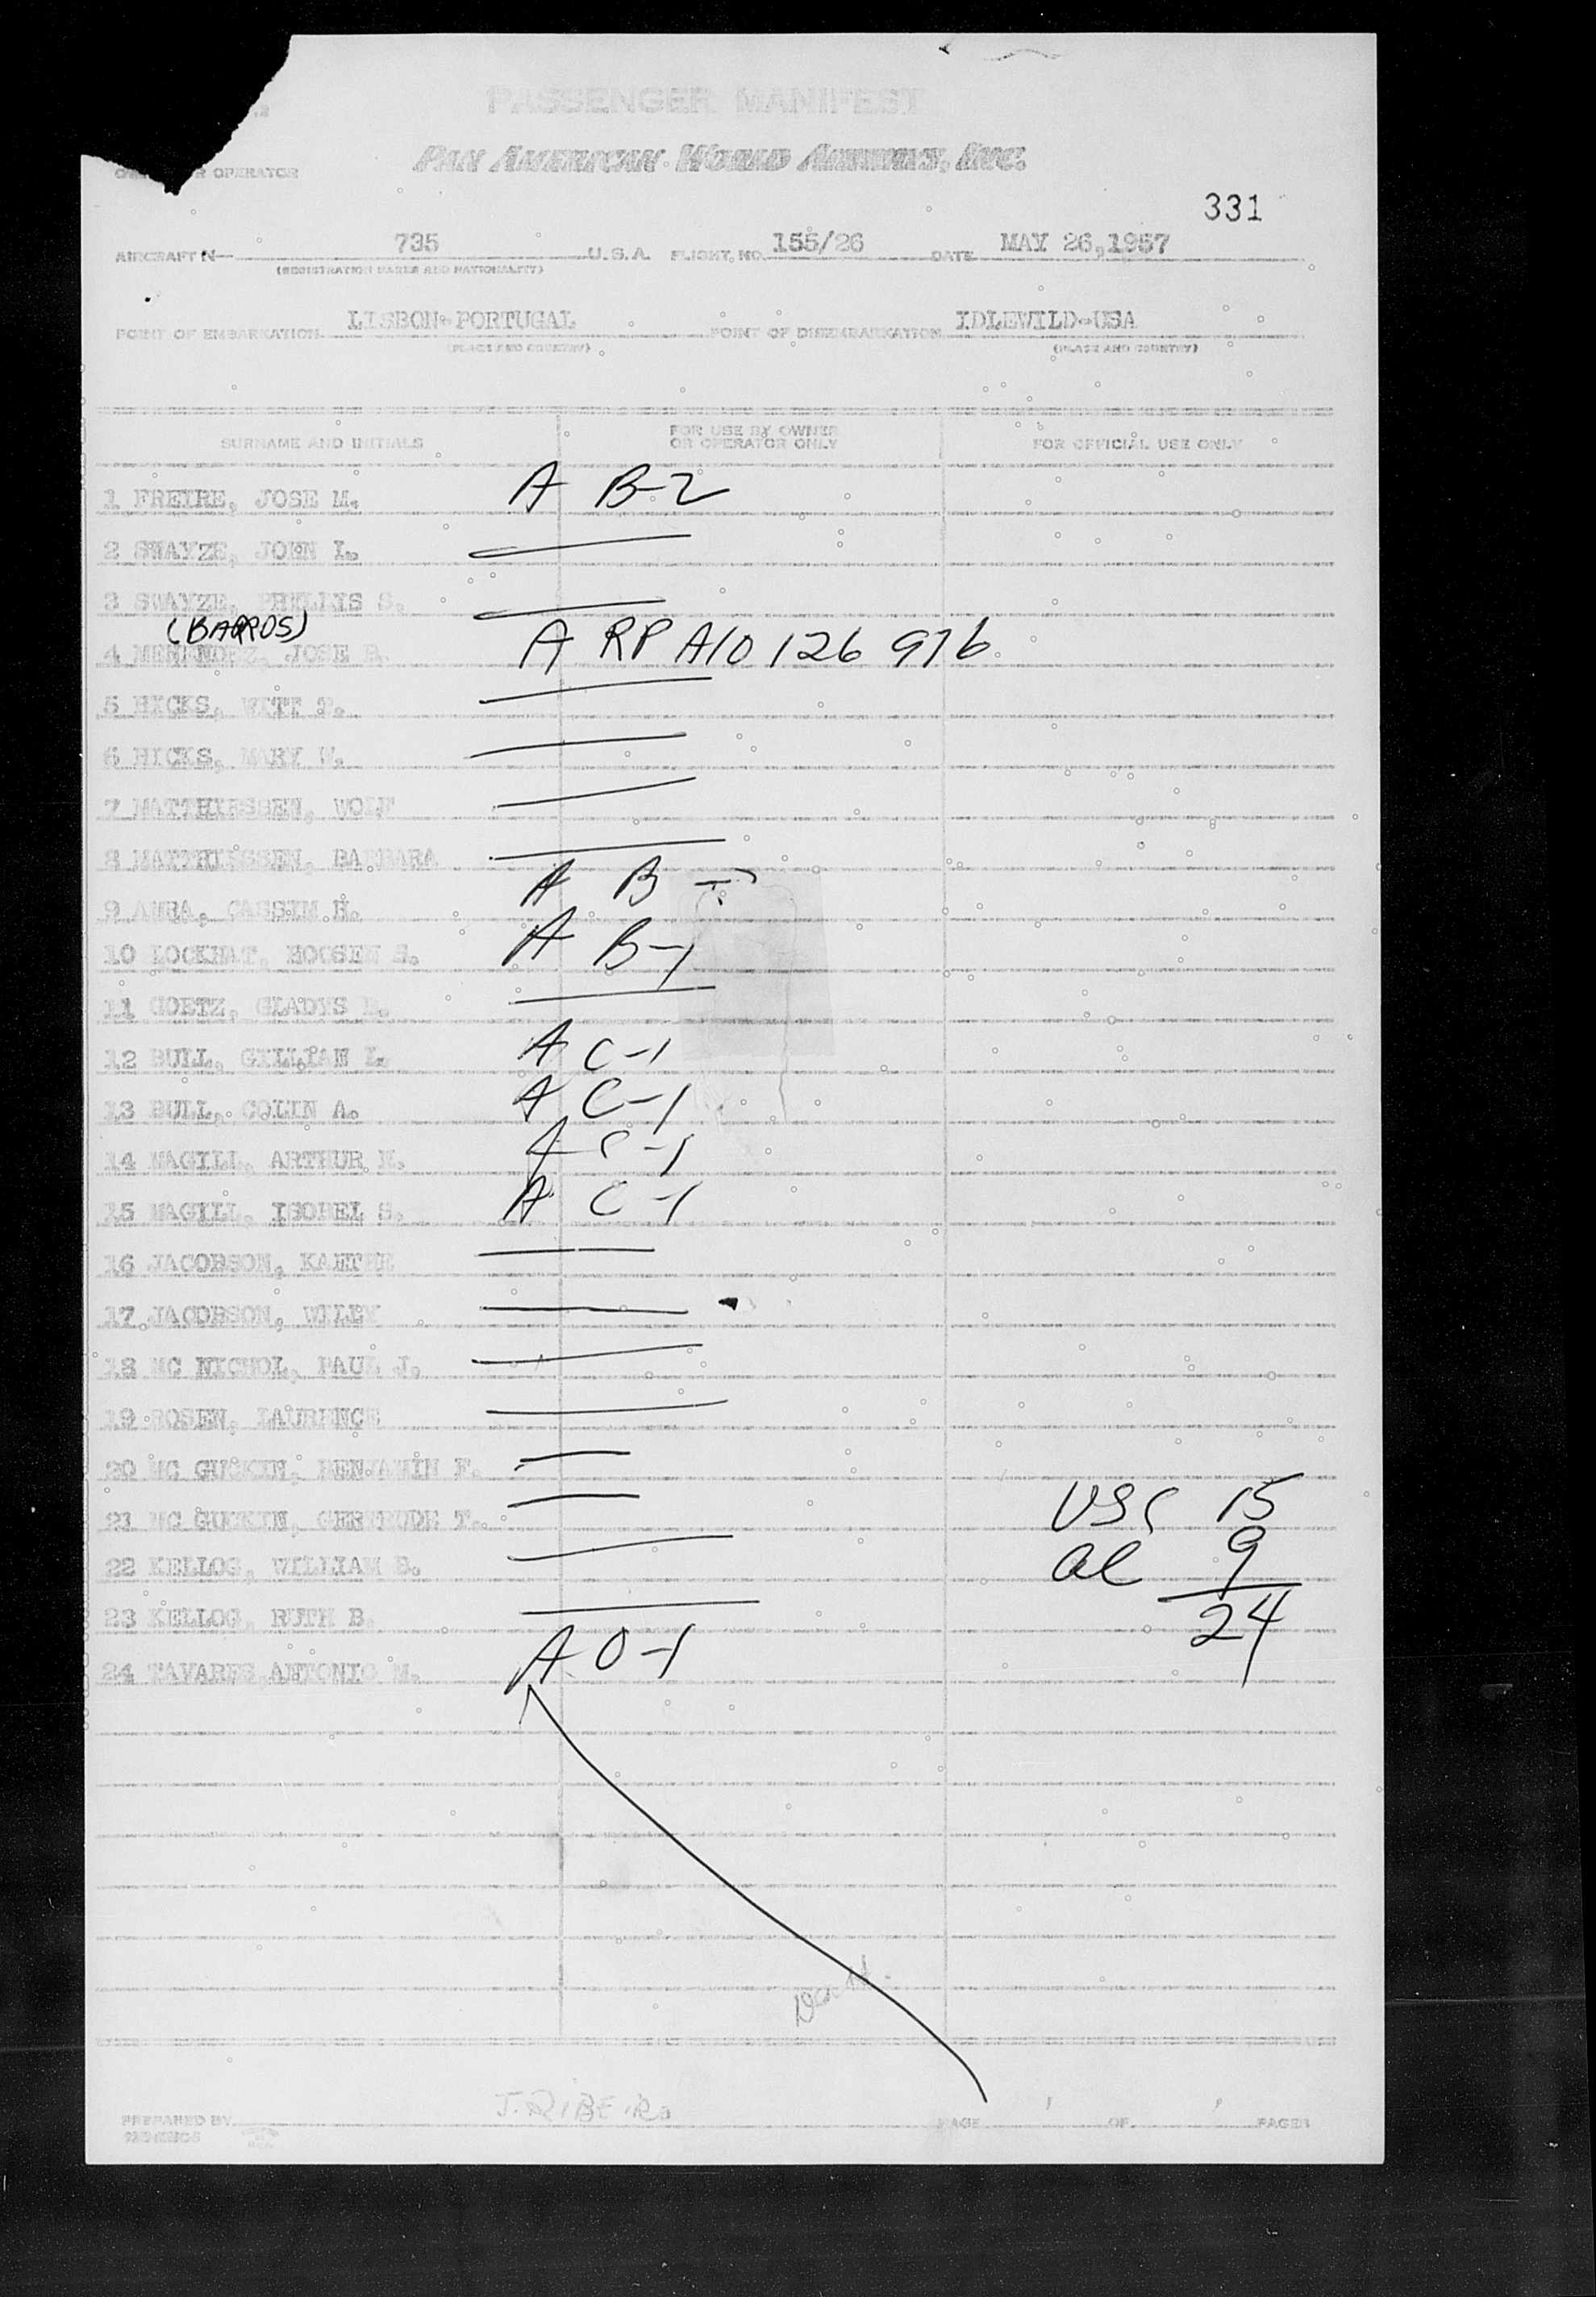 PASSENGER MANIFEST
PAN AMERICAN WORLD AIRWAYS, INC.
OPERATOR
331
AIRCRAFT N 735 U.S.A. FLIGHT NO. 155/26 DATE MAY 26,1957
(REGISTRATION MARKS AND NATIONALITY)
POINT OF EMBARKATION LISBON-PORTUGAL POINT OF DISEMBARKATION IDLEWILD-USA
(PLACE AND COUNTRY) (PLACE AND COUNTRY)
SURNAME AND INITIALS FOR USE BY OWNER OR OPERATOR ONLY FOR OFFICIAL USE ONLY
1 FREIRE, JOSE M. A B-2
2 SWAYZE, JOHN I.
3 SWAYZE, PHYLLIS S.
(BARROS)
4 MENENDEZ, JOSE B. A RP A10 126 976
5 HICKS, WITT T.
6 HICKS, MARY W.
7 MATTHIESSEN, WOLF
8 MATTHIESSEN, BARBARA
9 AMRA, CASSIM H. A B
10 LOCKHAT, HOOSEN S. A B-1
11 GOETZ, GLADYS
12 BULL, GILLIAN I. A C-1
13 BULL, COLIN A. A C-1
14 MAGILL, ARTHUR A C-1
15 MAGILL, ISOBEL S. A C-1
16 JACOBSON, KAETHE
17 JACOBSON, WILEY
18 MC NICHOL, PAUL J.
19 ROSEN, LAURENCE
20 MC GUCKIN, BENJAMIN F.
21 MC GUCKIN, GERTRUDE T. USC 15
22 KELLOG, WILLIAM B. al 9
23 KELLOG, RUTH B. 24
24 TAVARES ANTONIO M. A O-1
PREPARED BY J. RIBEIRO PAGE 1 OF 1 PAGES